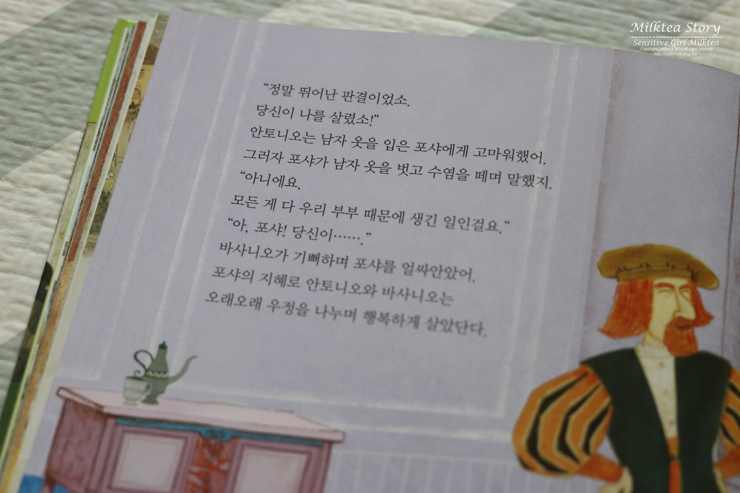 Milktea Story
Sensitive Girl Milktea
“정말 뛰어난 판결이었소.
당신이 나를 살렸소!”
안토니오는 남자 옷을 입은 포샤에게 고마워했어.
그러자 포샤가 남자 옷을 벗고 수염을 떼며 말했지.
“아니에요.
모든 게 다 우리 부부 때문에 생긴 일인걸요.”
“아, 포샤! 당신이…….”
바사니오가 기뻐하며 포샤를 얼싸안았어.
포샤의 지혜로 안토니오와 바사니오는
오래오래 우정을 나누며 행복하게 살았단다.